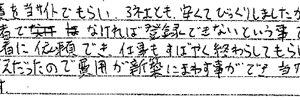 を当サイトでもらい、3社とも安くてびっくりしましたが
者でなければ登録できないという事で
者に依頼でき、仕事もすばやく終わらしてもらい
だったので費用が新築にまわす事ができ